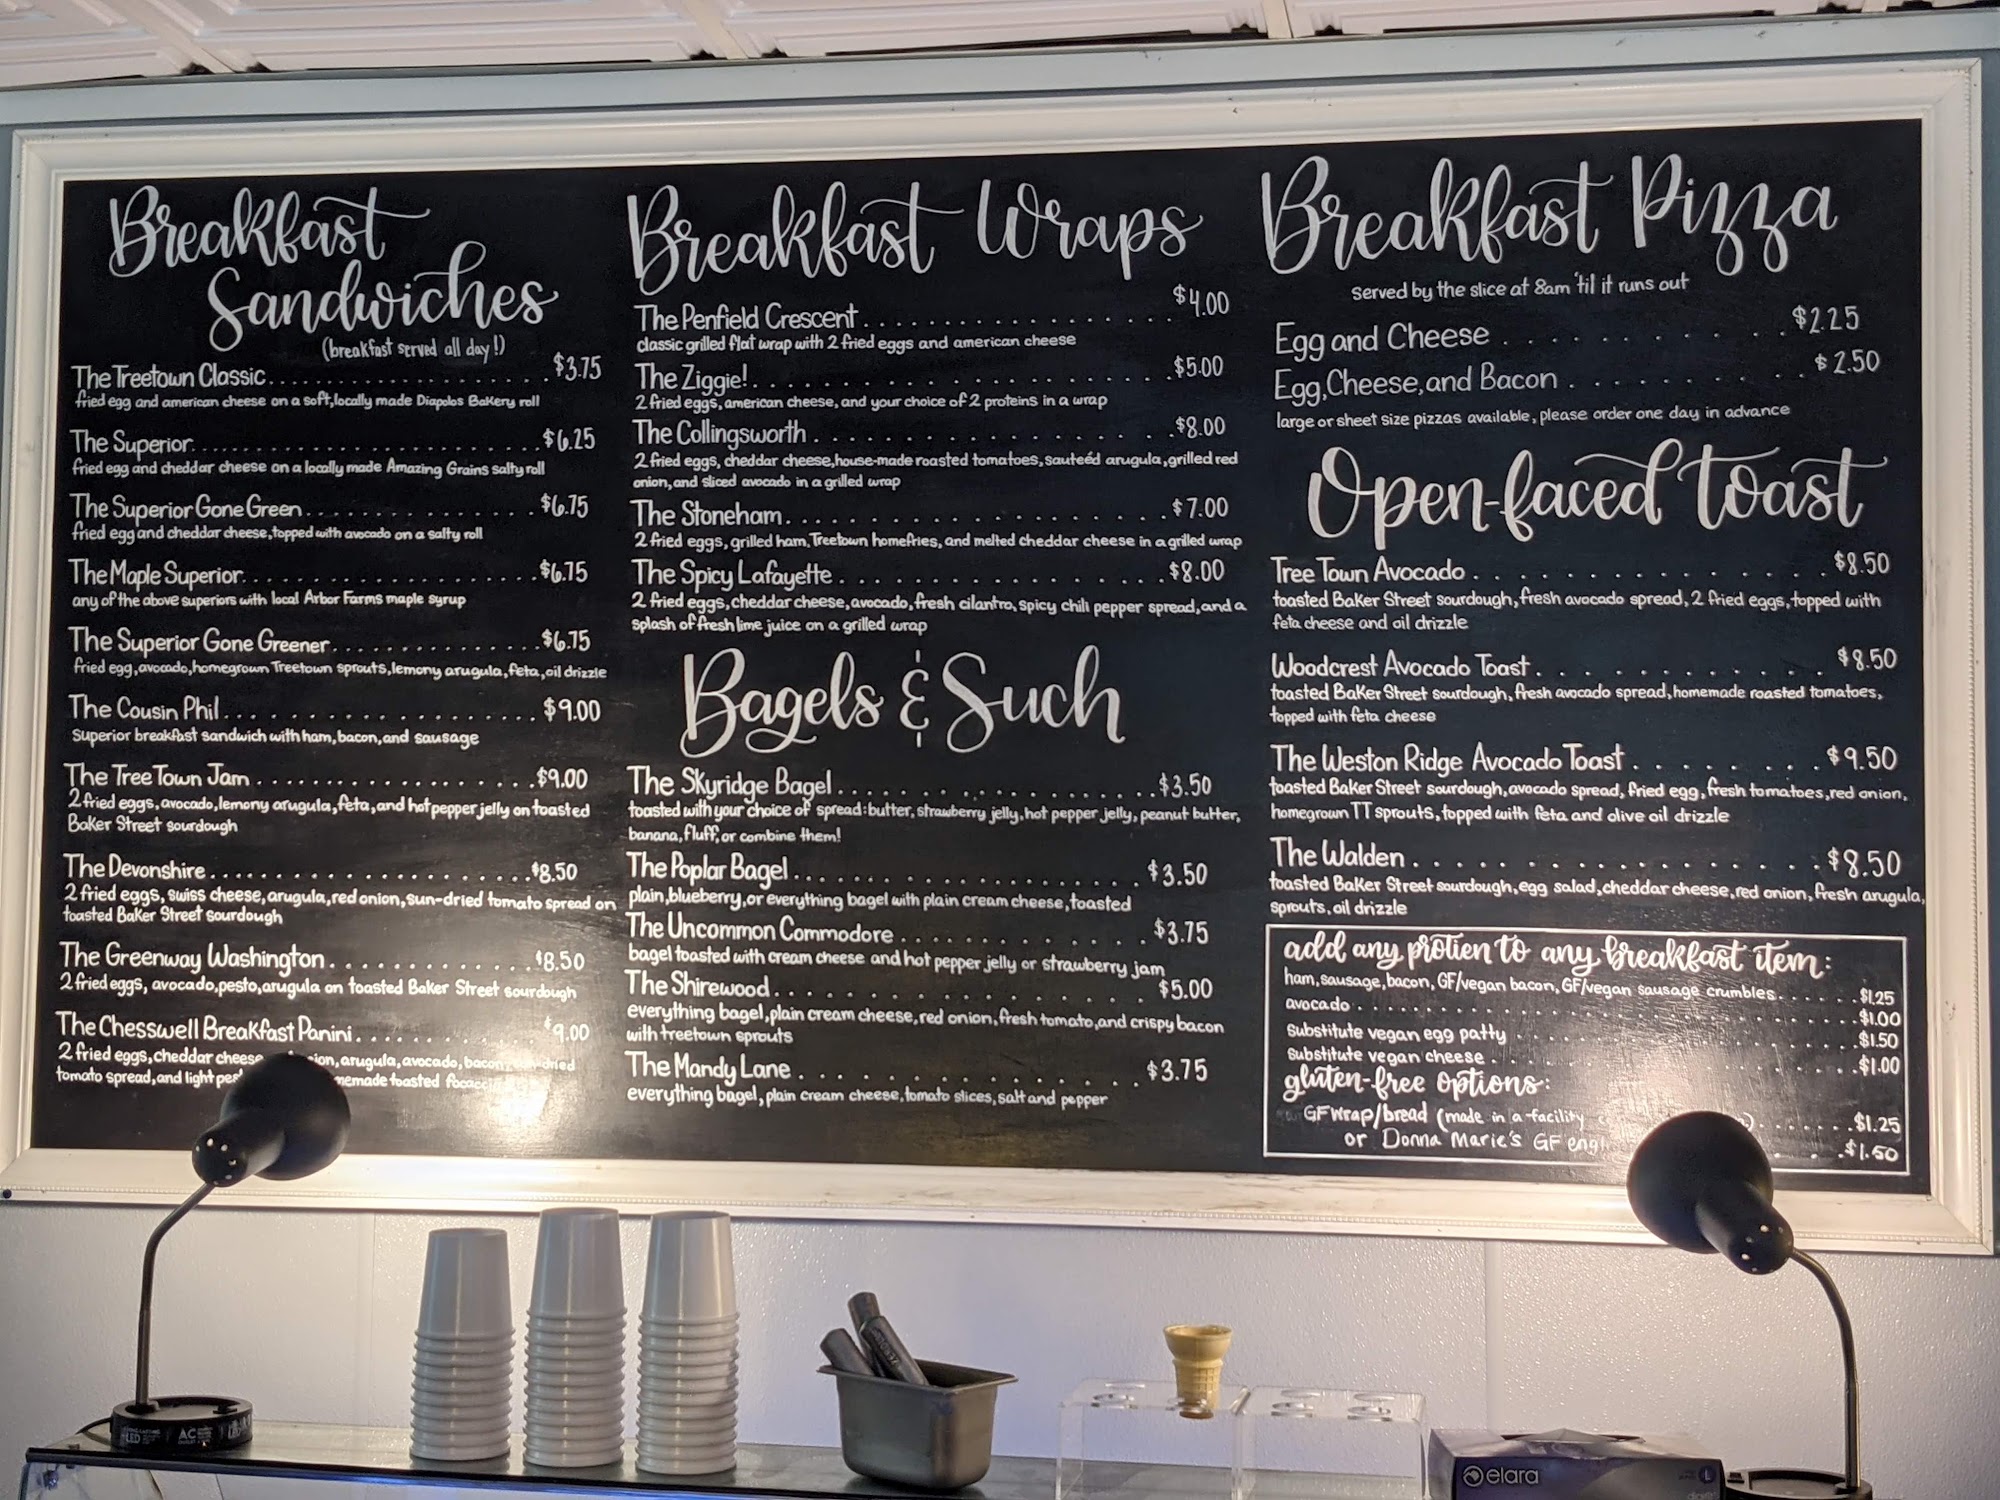 Breakfast
Sandwiches
(breakfast served all day!)
The Treetown Classic. . . . . . . . . . . . . . . . . . . . . $3.75
fried egg and american cheese on a soft, locally made Diapolos Bakery roll
The Superior. . . . . . . . . . . . . . . . . . . . . . . . . $6.25
fried egg and cheddar cheese on a locally made Amazing Grains salty roll
The Superior Gone Green. . . . . . . . . . . . . . . $6.75
fried egg and cheddar cheese, topped with avocado on a salty roll
The Maple Superior. . . . . . . . . . . . . . . . . . . . $6.75
any of the above superiors with local Arbor Farms maple syrup
The Superior Gone Greener. . . . . . . . . . . . . . $6.75
fried egg, avocado, homegrown Treetown sprouts, lemony arugula, feta, oil drizzle
The Cousin Phil. . . . . . . . . . . . . . . . . . . . $9.00
superior breakfast sandwich with ham, bacon, and sausage
The Tree Town Jam . . . . . . . . . . . . . . . . . . $9.00
2 fried eggs, avocado, lemony arugula, feta, and hot pepper jelly on toasted
Baker Street sourdough
The Devonshire . . . . . . . . . . . . . . . . . . . . . $8.50
2 fried eggs, swiss cheese, arugula, red onion, sun-dried tomato spread on
toasted Baker Street sourdough
The Greenway Washington. . . . . . . . . . . . . $8.50
2 fried eggs, avocado, pesto, arugula on toasted Baker Street sourdough
The Chesswell Breakfast Panini. . . . . . . . . . . $9.00
2 fried eggs, cheddar cheese, arugula, avocado, bacon,
tomato spread, and light toasted
Breakfast Wraps
The Penfield Crescent. . . . . . . . . . . . . . . . . . $4.00
classic grilled flat wrap with 2 fried eggs and american cheese
The Ziggie!. . . . . . . . . . . . . . . . . . . . . . $5.00
2 fried eggs, american cheese, and your choice of 2 proteins in a wrap
The Collingsworth . . . . . . . . . . . . . . . . . . $8.00
2 fried eggs, cheddar cheese, house-made roasted tomatoes, sauteéd arugula, grilled red
onion, and sliced avocado in a grilled wrap
The Stoneham. . . . . . . . . . . . . . . . . . . . $7.00
2 fried eggs, grilled ham, Treetown homefries, and melted cheddar cheese in a grilled wrap
The Spicy Lafayette . . . . . . . . . . . . . . . . . $8.00
2 fried eggs, cheddar cheese, avocado, fresh cilantro, spicy chili pepper spread, and a
splash of fresh lime juice on a grilled wrap
Bagels & Such
The Skyridge Bagel. . . . . . . . . . . . . . . . . . $3.50
toasted with your choice of spread: butter, strawberry jelly, hot pepper jelly, peanut butter,
banana, fluff, or combine them!
The Poplar Bagel. . . . . . . . . . . . . . . . . . . $3.50
plain, blueberry, or everything bagel with plain cream cheese, toasted
The Uncommon Commodore . . . . . . . . . . . . $3.75
bagel toasted with cream cheese and hot pepper jelly or strawberry jam
The Shirewood. . . . . . . . . . . . . . . . . . . . $5.00
everything bagel, plain cream cheese, red onion, fresh tomato, and crispy bacon
with treetown sprouts
The Mandy Lane . . . . . . . . . . . . . . . . . . $3.75
everything bagel, plain cream cheese, tomato slices, salt and pepper
Breakfast Pizza
Served by the slice at 8am 'til it runs out
Egg and Cheese . . . . . . . . . . . . $2.25
Egg, Cheese, and Bacon . . . . . . . . . . $2.50
large or sheet size pizzas available, please order one day in advance
Open-faced toast
Tree Town Avocado . . . . . . . . . . . . . . . . . $8.50
toasted Baker Street sourdough, fresh avocado spread, 2 fried eggs, topped with
feta cheese and oil drizzle
Woodcrest Avocado Toast . . . . . . . . . . . . . $8.50
toasted Baker Street sourdough, fresh avocado spread, homemade roasted tomatoes,
topped with feta cheese
The Weston Ridge Avocado Toast . . . . . . . . . $9.50
toasted Baker Street sourdough, avocado spread, fried egg, fresh tomatoes, red onion,
homegrown TT sprouts, topped with feta and olive oil drizzle
The Walden . . . . . . . . . . . . . . . . . . . . $8.50
toasted Baker Street sourdough, egg salad, cheddar cheese, red onion, fresh arugula,
sprouts, oil drizzle
add any protien to any breakfast item:
ham, sausage, bacon, GF/vegan bacon, GF/vegan sausage crumbles. . . . . . $1.25
avocado . . . . . . . . . . . . . . . . . . . . . . $1.00
substitute vegan egg patty . . . . . . . . . . . . . . . $1.50
substitute vegan cheese . . . . . . . . . . . . . . . . $1.00
gluten-free options:
GF wrap/bread (made in a facility ) . . . . . . $1.25
or Donna Marie's GF . . . $1.50
LED
AC
elara
L